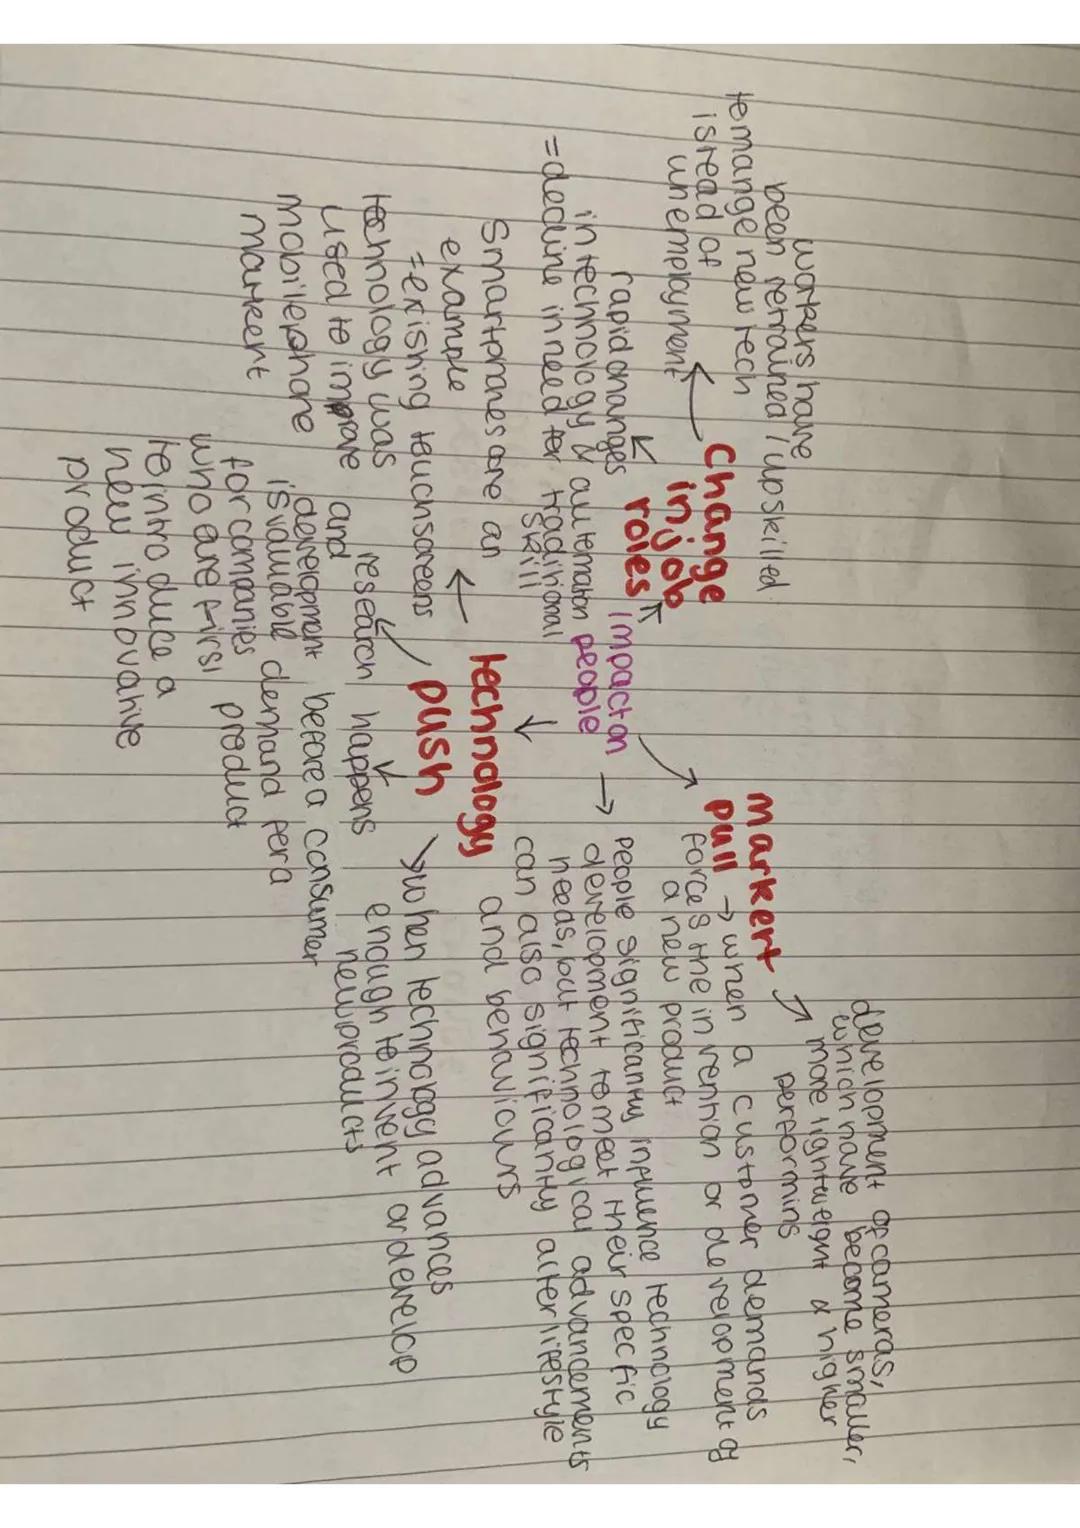 workers have
been retrained / upskilled
to mange new tech
isread of
unemployment
Change
in job
roles
rapid changes
in technology & automation
= decline in need for traditional
skill
impact on
people
markert
pull
development of cameras,
which have become smaller,
more lightweight & higher
performins
→ when a customer demands
forces the invention or development of
a new product
people significantly influence technology
development to meet their specfic
needs, but technological advancements
can also significantly alter lifestyle
and behaviours
technology
push
Smartphones are an
example
= existing touchscreens
technology was
used to improve
mobilephone
markert
when technology advances
enough to invent or develop
new products
research happens
and
development before a consumer
is valuable demand for a
for companies product
who are first
to introduce a
new innovative
product